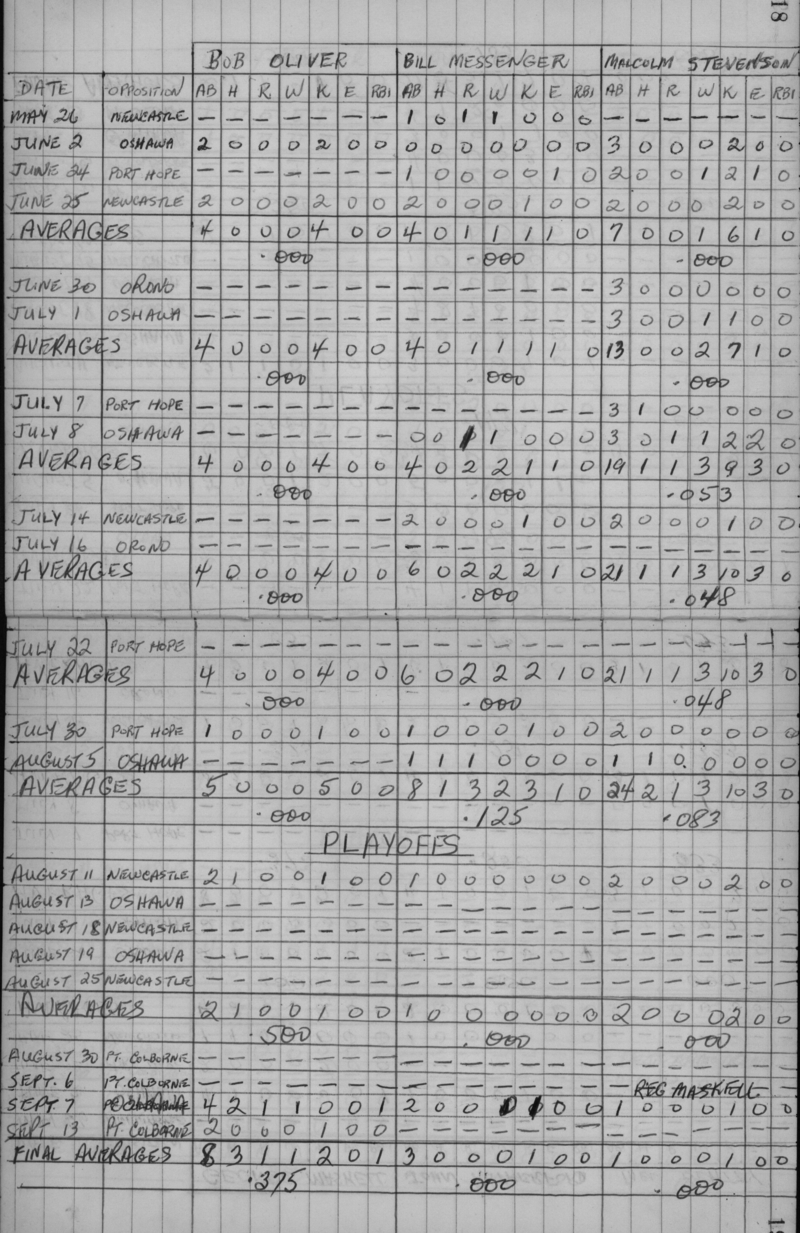 18
BOB OLIVER BILL MESSENGER MALCOLM STEVENSON
DATE OPPOSITION AB H R W K E RBI AB H R W K E RBI AB H R W K E RBI
MAY 26 NEWCASTLE — — — — — — — 1 0 1 1 0 0 0 — — — — — — —
JUNE 2 OSHAWA 2 0 0 0 2 0 0 0 0 0 0 0 0 0 3 0 0 0 2 0 0
JUNE 24 PORT HOPE — — — — — — — 1 0 0 0 0 1 0 2 0 0 1 2 1 0
JUNE 25 NEWCASTLE 2 0 0 0 2 0 0 2 0 0 0 1 0 0 2 0 0 0 2 0 0
AVERAGES 4 0 0 0 4 0 0 4 0 1 1 1 1 0 7 0 0 1 6 1 0
.000 .000 .000
JUNE 30 ORONO — — — — — — — — — — — — — — 3 0 0 0 0 0 0
JULY 1 OSHAWA — — — — — — — — — — — — — — 3 0 0 1 1 0 0
AVERAGES 4 0 0 0 4 0 0 4 0 1 1 1 1 0 13 0 0 2 7 1 0
.000 .000 .000
JULY 7 PORT HOPE — — — — — — — — — — — — — — 3 1 0 0 0 0 0
JULY 8 OSHAWA — — — — — — — 0 0 1 1 0 0 0 3 0 1 1 2 2 0
AVERAGES 4 0 0 0 4 0 0 4 0 2 2 1 1 0 19 1 1 3 9 3 0
.000 .000 .053
JULY 14 NEWCASTLE — — — — — — — 2 0 0 0 1 0 0 2 0 0 0 1 0 0
JULY 16 ORONO — — — — — — — — — — — — — — — — — — — — —
AVERAGES 4 0 0 0 4 0 0 6 0 2 2 2 1 0 21 1 1 3 10 3 0
.000 .000 .048
JULY 22 PORT HOPE — — — — — — — — — — — — — — — — — — — — —
AVERAGES 4 0 0 0 4 0 0 6 0 2 2 2 1 0 21 1 1 3 10 3 0
.000 .000 .048
JULY 30 PORT HOPE 1 0 0 0 1 0 0 1 0 0 0 1 0 0 2 0 0 0 0 0 0
AUGUST 5 OSHAWA — — — — — — — 1 1 1 0 0 0 0 1 1 0 0 0 0 0
AVERAGES 5 0 0 0 5 0 0 8 1 3 2 3 1 0 24 2 1 3 10 3 0
.000 .125 .083
PLAYOFFS
AUGUST 11 NEWCASTLE 2 1 0 0 1 0 0 1 0 0 0 0 0 0 2 0 0 0 2 0 0
AUGUST 13 OSHAWA — — — — — — — — — — — — — — — — — — — — —
AUGUST 18 NEWCASTLE — — — — — — — — — — — — — — — — — — — — —
AUGUST 19 OSHAWA — — — — — — — — — — — — — — — — — — — — —
AUGUST 25 NEWCASTLE — — — — — — — — — — — — — — — — — — — — —
AVERAGES 2 1 0 0 1 0 0 1 0 0 0 0 0 0 2 0 0 0 2 0 0
.500 .000 .000
AUGUST 30 PT. COLBORNE — — — — — — — — — — — — — —
SEPT. 6 PT. COLBORNE — — — — — — — — — — — — — — REG MASKELL
SEPT 7 4 2 1 1 0 0 1 2 0 0 0 1 0 0 1 0 0 0 1 0 0
SEPT 13 PT. COLBORNE 2 0 0 0 1 0 0 — — — — — — — — — — — — — —
FINAL AVERAGES 8 3 1 1 2 0 1 3 0 0 0 1 0 0 1 0 0 0 1 0 0
.375 .000 .000